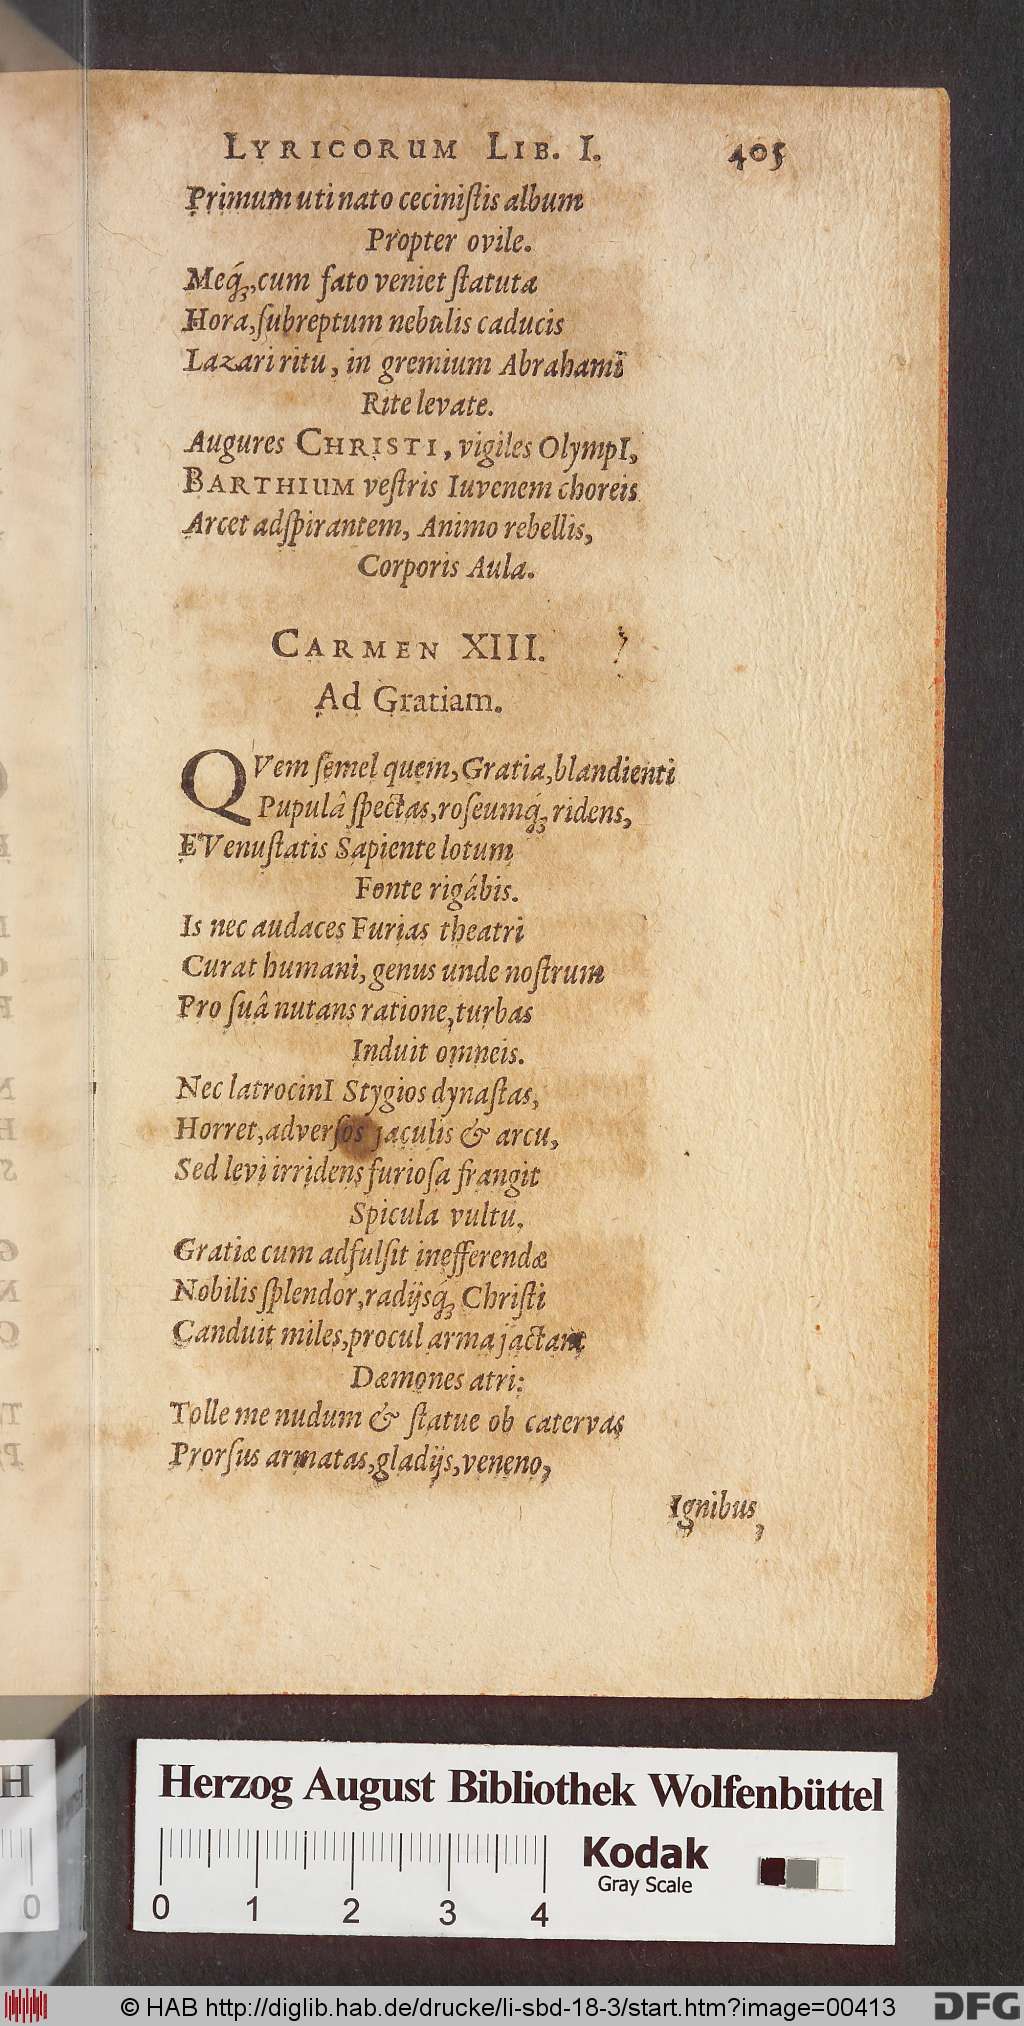 LYRICORUM LIB. I. 405
Primum uti nato ceciniſtis album
Propter ovile.
Meq́;, cum fato veniet ſtatuta
Hora, ſubreptum nebulis caducis
Lazari ritu, in gremium Abrahami
Rite levate.
Augures CHRISTI, vigiles OlympI,
BARTHIUM veſtris Iuvenem choreis
Arcet adſpirantem, Animo rebellis,
Corporis Aula.
CARMEN XIII.
Ad Gratiam.
QVem ſemel quem, Gratia, blandienti
Pupulâ ſpectas, roſeumq́; ridens,
E Venuſtatis Sapiente lotum
Fonte rigâbis.
Is nec audaces Furias theatri
Curat humani, genus unde noſtrum
Pro ſuâ nutans ratione, turbas
Induit omneis.
Nec latrocinI Stygios dynaſtas,
Horret, adverſos jaculis & arcu,
Sed levi irridens furioſa frangit
Spicula vultu.
Gratiæ cum adfulſit inefferendæ
Nobilis ſplendor, radijsq́; Chriſti
Canduit miles, procul arma jactant
Dæmones atri:
Tolle me nudum & ſtatue ob catervas
Prorſus armatas, gladijs, veneno,
Ignibus,
Herzog August Bibliothek Wolfenbüttel
Kodak
Gray Scale
0 1 2 3 4
H
0
© HAB http://diglib.hab.de/drucke/li-sbd-18-3/start.htm?image=00413
DFG